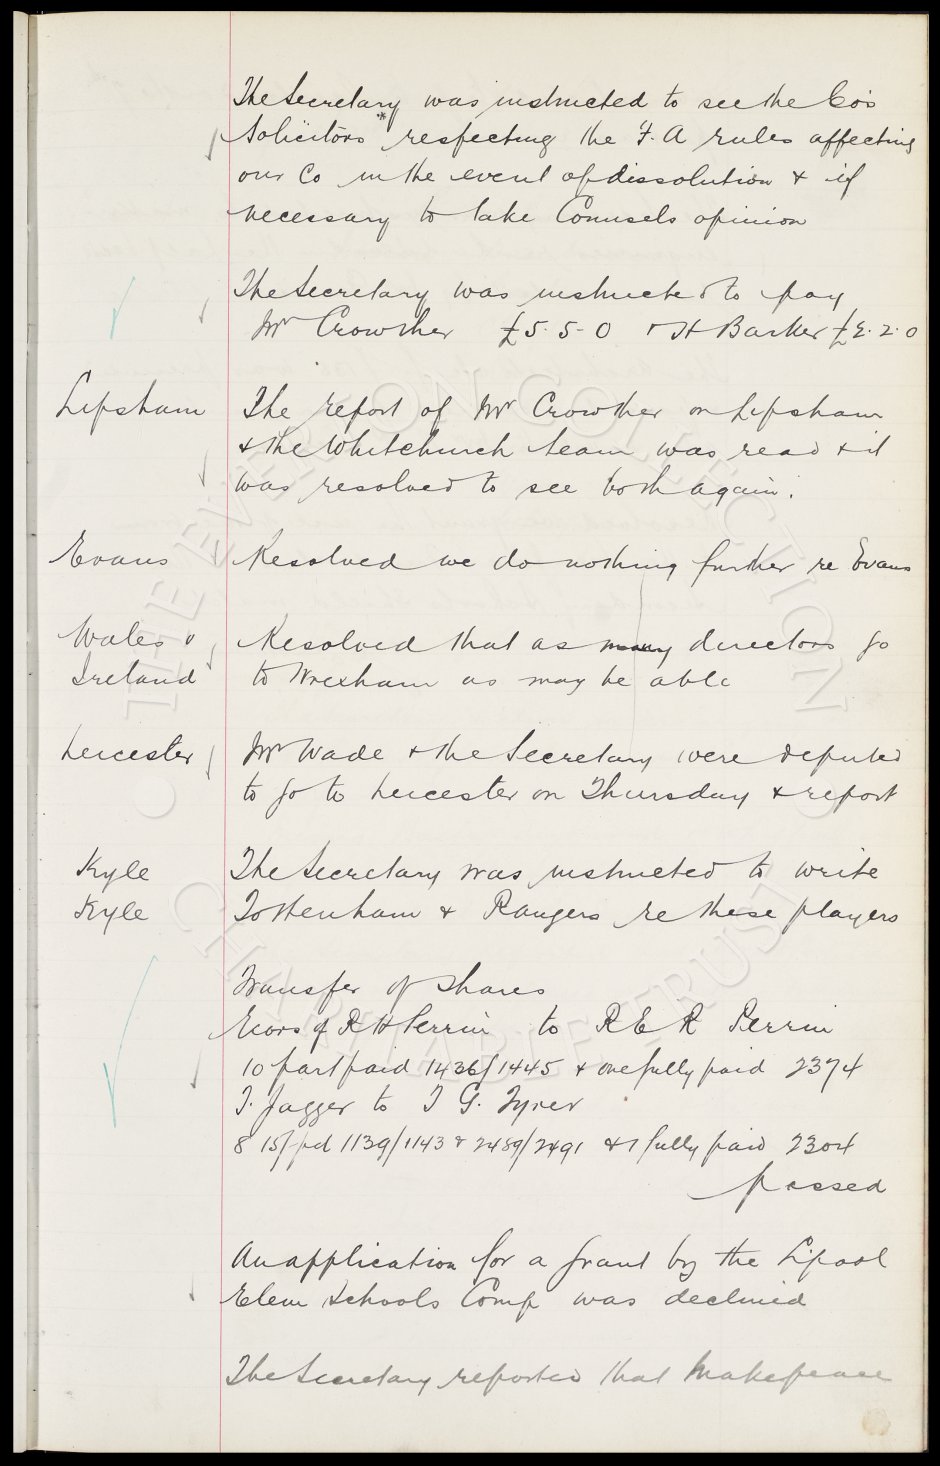 The Secretary was instructed to see the Co's
Solicitors respecting the F.A rules affecting
our Co in the event of dissolution & if
necessary to take Counsels opinion
The Secretary was instructed to pay
Mr Crowther £5.5.0 & H Barker £2.2.0
Lipsham The report of Mr Crowther on Lipsham
& the Whitchurch team was read & it
was resolved to see both again.
Evans Resolved we do nothing further re Evans
Wales v Resolved that as many directors go
Ireland to Wrexham as may be able
Leicester Mr Wade & the Secretary were deputed
to go to Leicester on Thursday & report
Kyle The Secretary was instructed to write
Kyle Tottenham & Rangers re these players
Transfer of shares
Exors of R H Perrin to R E R Perrin
10 part paid 1436/1445 & one fully paid 2374
T. Jagger to T G. Tyrer
8 15/ pd 1139/1143 & 2489/2491 & 1 fully paid 2304
passed
An application for a grant by the Lipool
Elem Schools Comp was declined
The Secretary reported that Makepeace
THE EVERTON COLLECTION
CHARITABLE TRUST